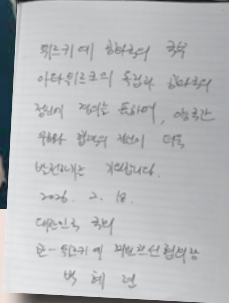 튀르키예 공화국의 국부
아타튀르크의 독립과 공화국의
정신에 경의를 표하며, 양국간
우호와 협력의 정신이 더욱
발전되기를 기원합니다.
2026. 2. 18.
대한민국 국회
한-튀르키예 의원친선협회